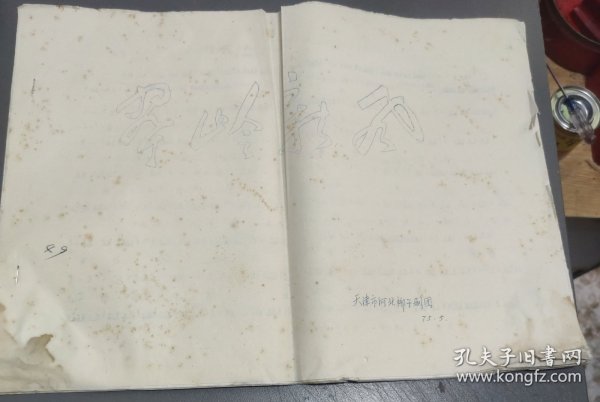 翠岭新风
89
天津市河北梆子剧团
75.5.
孔夫子旧书网
www.kongfz.com